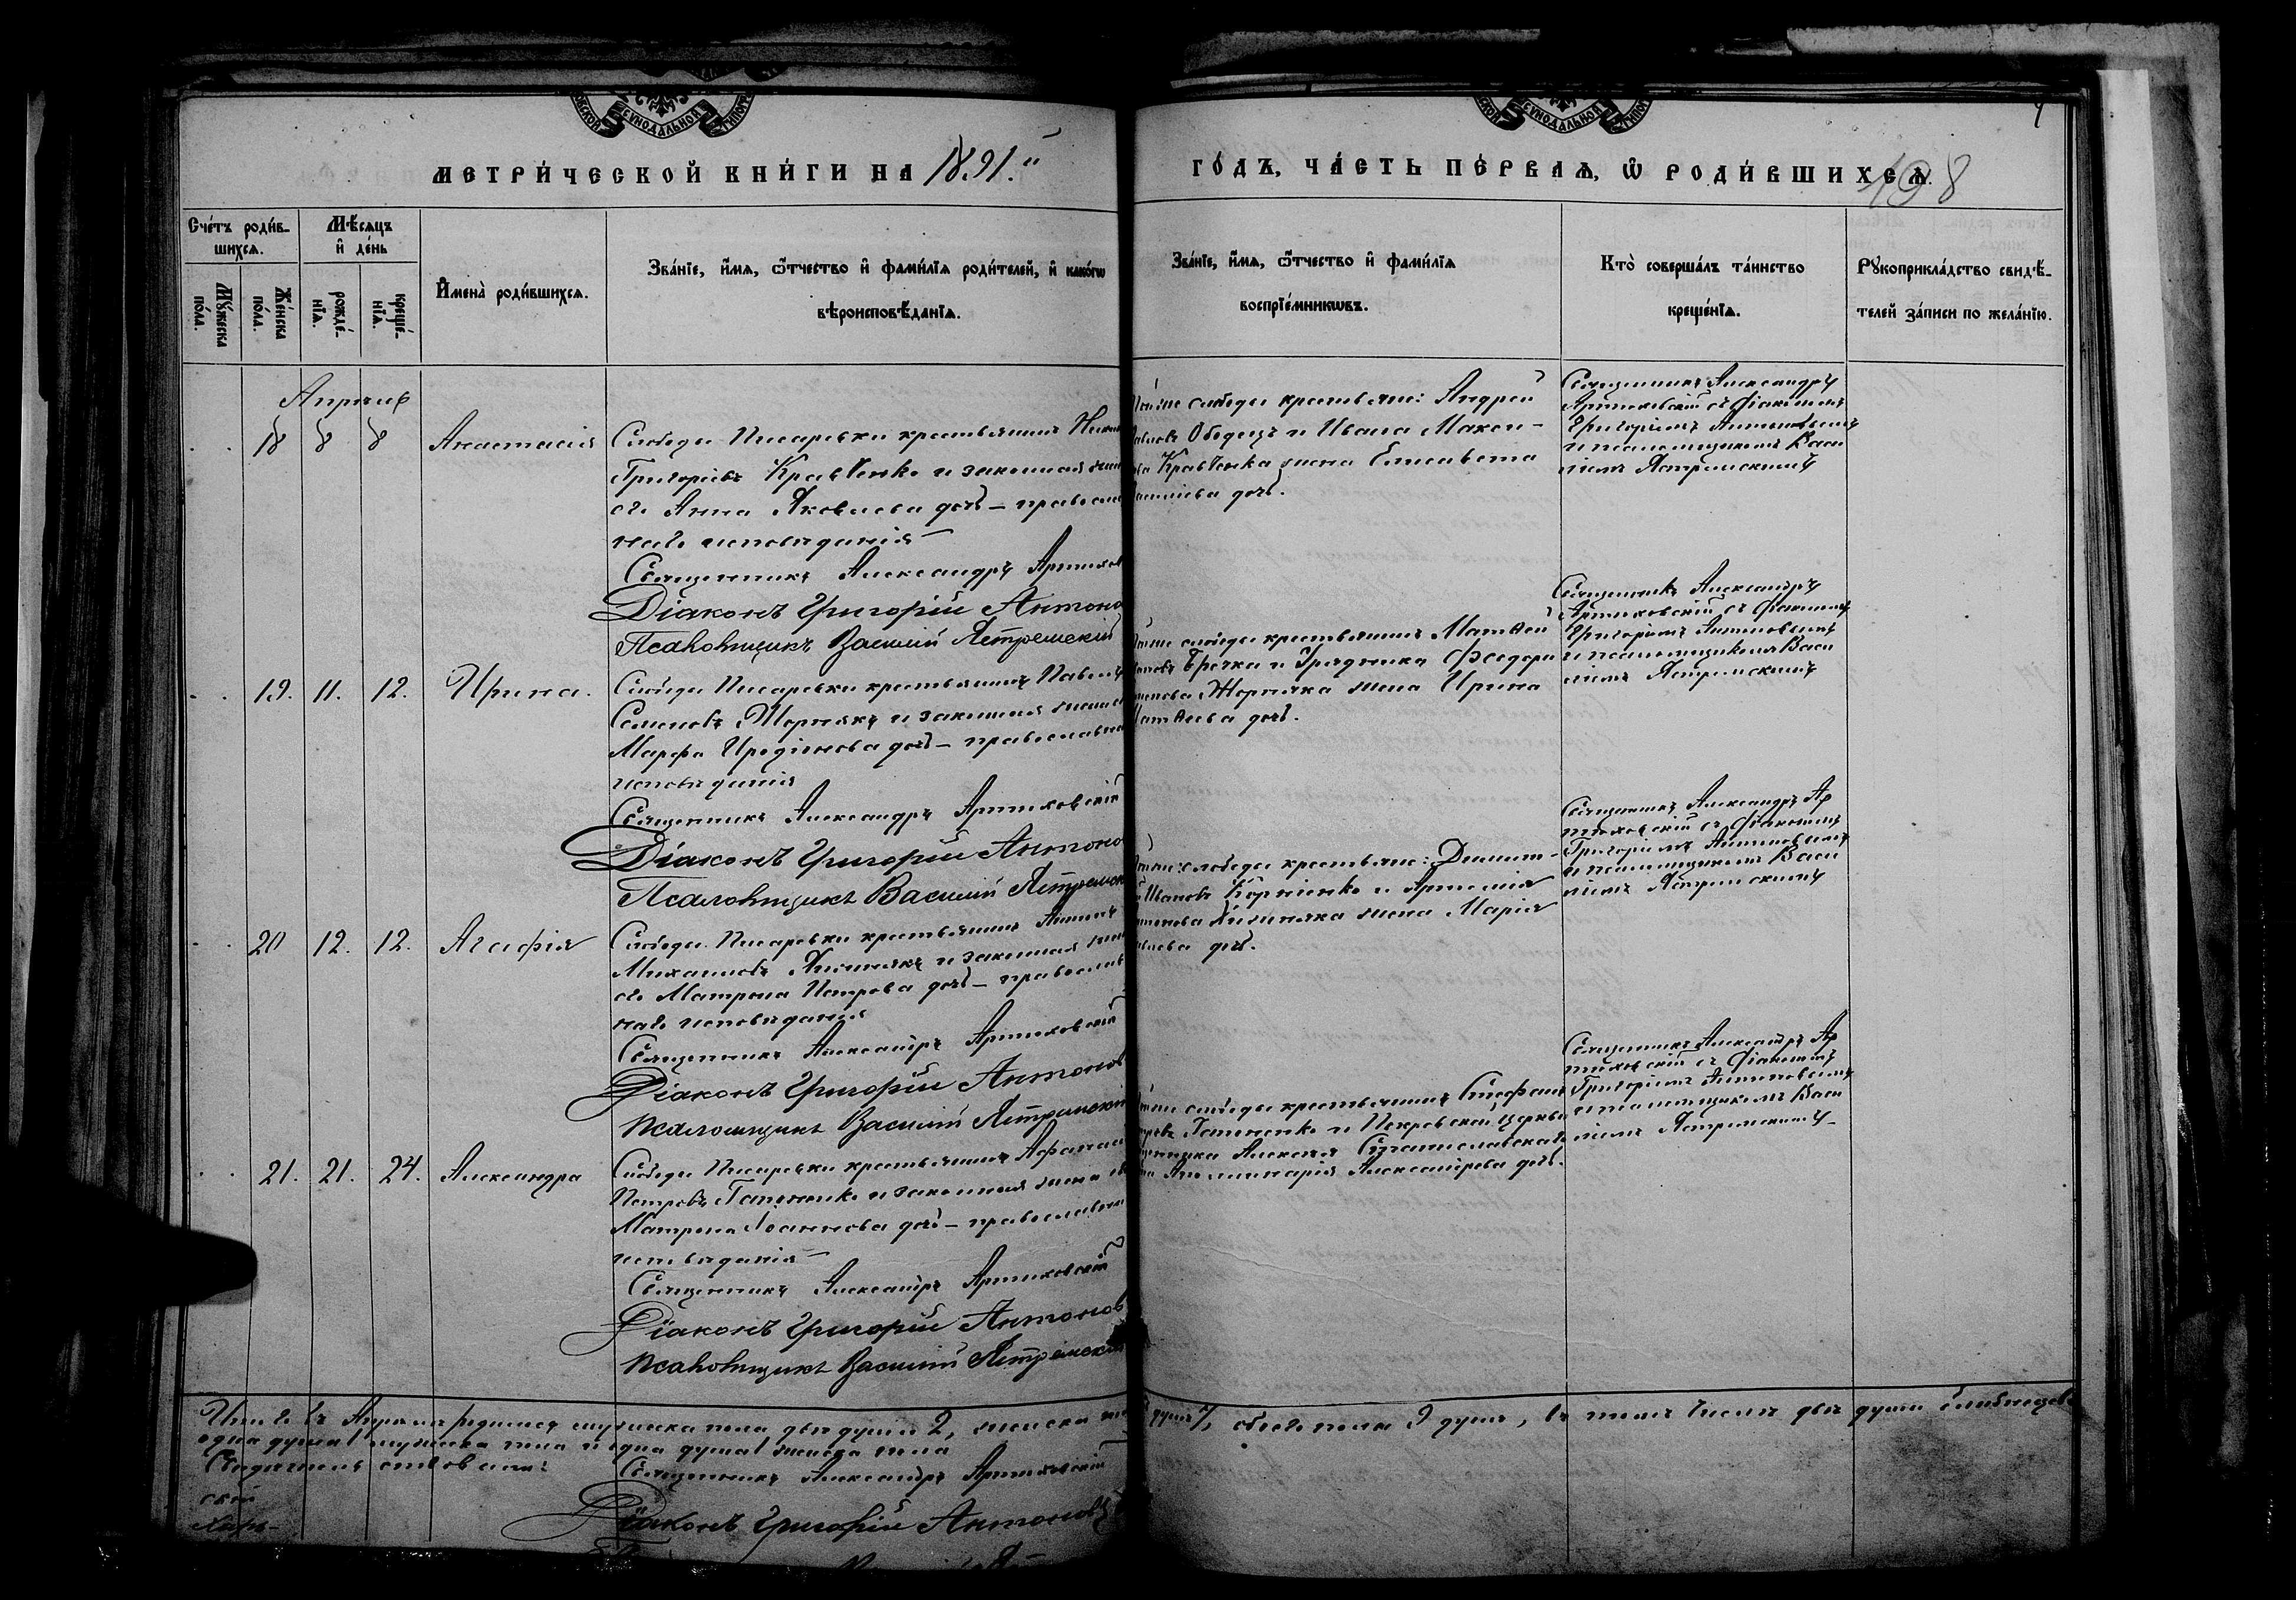 МЕТРИ́ЧЕСКОЙ КНИ́ГИ НА 1891.й
ГО́ДЪ, ЧА́СТЬ ПЕ́РВАѦ, Ѡ РОДИ́ВШИХСѦ.
198
Сче́тъ роди́в-
шихсѧ.
Мꙋ́жеска
по́ла.
Же́нска
по́ла.
Мѣ́сѧцъ
и де́нь
рожде́-
нїѧ.
креще́-
нїѧ.
Имена̀ роди́вшихсѧ.
Зва́нїе, и́мѧ, ѻ́тчество и фами́лїѧ роди́телей, и како́гѡ
вѣроисповѣ́данїѧ.
Зва́нїе, и́мѧ, ѻ́тчество и фами́лїѧ
воспрїе́мникѡвъ.
Кто̀ соверша́лъ та́инство
креще́нїѧ.
Рꙋкоприкла́дство свидѣ́-
телей за́писи по жела́нїю.
Апрѣль
18 8 8 Анастасія
Слободы Писаревки крестьянинъ
Григорьевъ Кравченко и законная
его Анна Яковлева дочь – православ
наго исповѣданія
Священникъ Александръ Артюхов
Діаконъ Григорій Антоно
Псаломщикъ Василій Ястремскій
слободы крестьяне: Андрей
Ободецъ и Ивана Макси-
Кравченка жена Елисавета
дочь.
Священникъ Александръ
Артюховскій съ діакономъ
Григоріемъ Антоновымъ
и псаломщикомъ Васи
ліемъ Ястремскимъ
19. 11. 12. Ирина.
Слободы Писаревки крестьянинъ Павелъ
Семеновъ Жорнякъ и законная жена
Марфа Иродіонова дочь – православна
исповѣданія
Священникъ Александръ Артюховскій
Діаконъ Григорій Антоно
Псаломщикъ Василій Ястремск
слободы крестьянинъ Матвѣй
Бречка и Урядника Ѳеодора
Жорняка жена Ирина
Матвѣева дочь.
Священникъ Александръ
Артюховскій съ діакономъ
Григоріемъ Антоновымъ
и псаломщикомъ Васи
ліемъ Ястремскимъ
20 12. 12. Агафія
Слободы Писаревки крестьянинъ
Михаиловъ и законная
его Матрона Петрова дочь – православ
наго исповѣданія
Священникъ Александръ Артюховскій
Діаконъ Григорій Антонов
Псаломщикъ Василій Ястремскій
слободы крестьяне: Димит-
Ивановъ Корніенко и Артемія
жена Марія
дочь.
Священникъ Александръ Ар
тюховскій съ діакономъ
Григоріемъ Антоновымъ
и псаломщикомъ Васи
ліемъ Ястремскимъ
21. 21. 24. Александра
Слободы Писаревки крестьянинъ Афанас
Петровъ Гапоненко и законная жена его
Матрона Іоаннова дочь – православна
исповѣданія
Священникъ Александръ Артюховскій
Діаконъ Григорій Антонов
Псаломщикъ Василій Ястремскій
слободы крестьянинъ Стефанъ
Гапоненко и Покровской церкви
Алексія Станиславскаго
Аполлинарія Александрова дочь.
Священникъ Александръ Ар
тюховскій съ діакономъ
Григоріемъ Антоновымъ
и псаломщикомъ Васи
ліемъ Ястремскимъ
Итого въ Апрѣлѣ родилося мужеска пола двѣ души 2, женска душъ 7, обоего пола 9 душъ, въ томъ числѣ двѣ души близнецовъ
одна душа мужеска пола и одна душа женска пола
Священникъ Александръ Артюховскій
Діаконъ Григорій Антоновъ